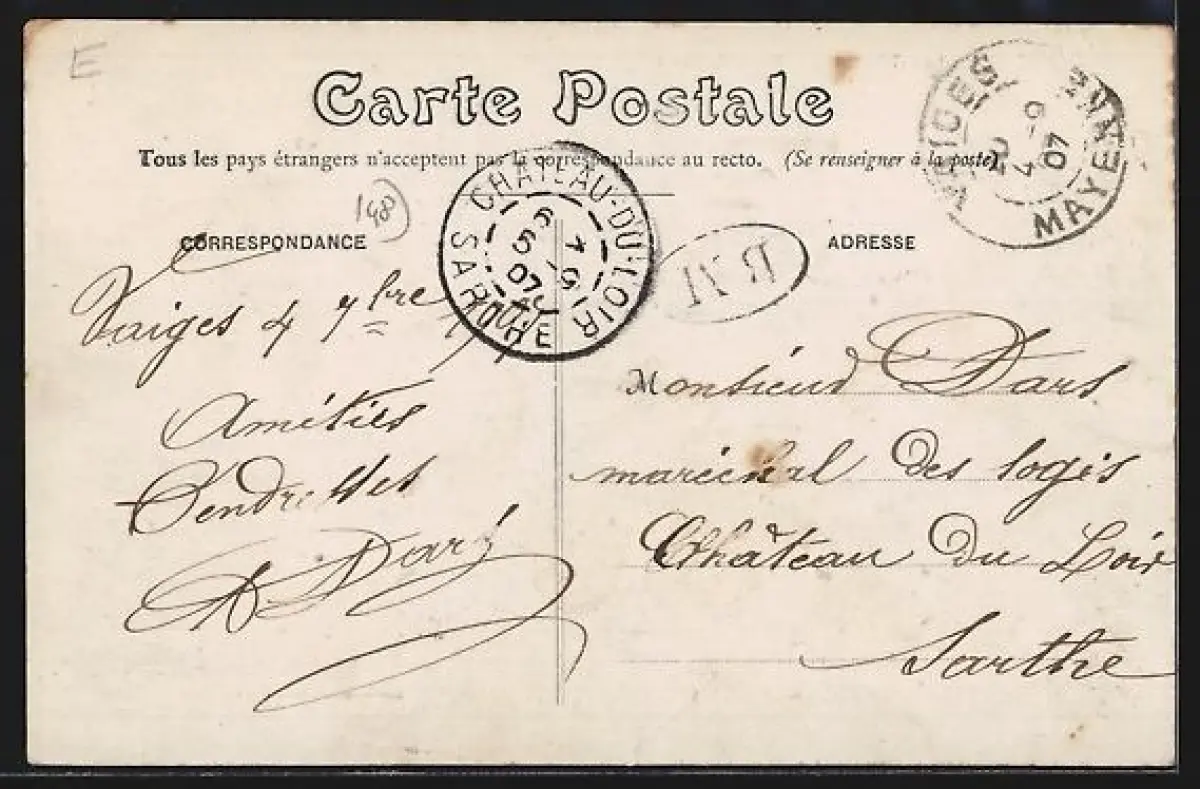 E
Carte Postale
Tous les pays étrangers n'acceptent pas la correspondance au recto. (Se renseigner à la poste).
VAIGES
MAYENNE
4 -9
07
CHATEAU-DU-LOIR
SARTHE
07
148
BM
CORRESPONDANCE
ADRESSE
Vaiges 4 7bre
Amitiés
Tendresses
A Dars
Monsieur Dars
maréchal des logis
Château du Loir
Sarthe